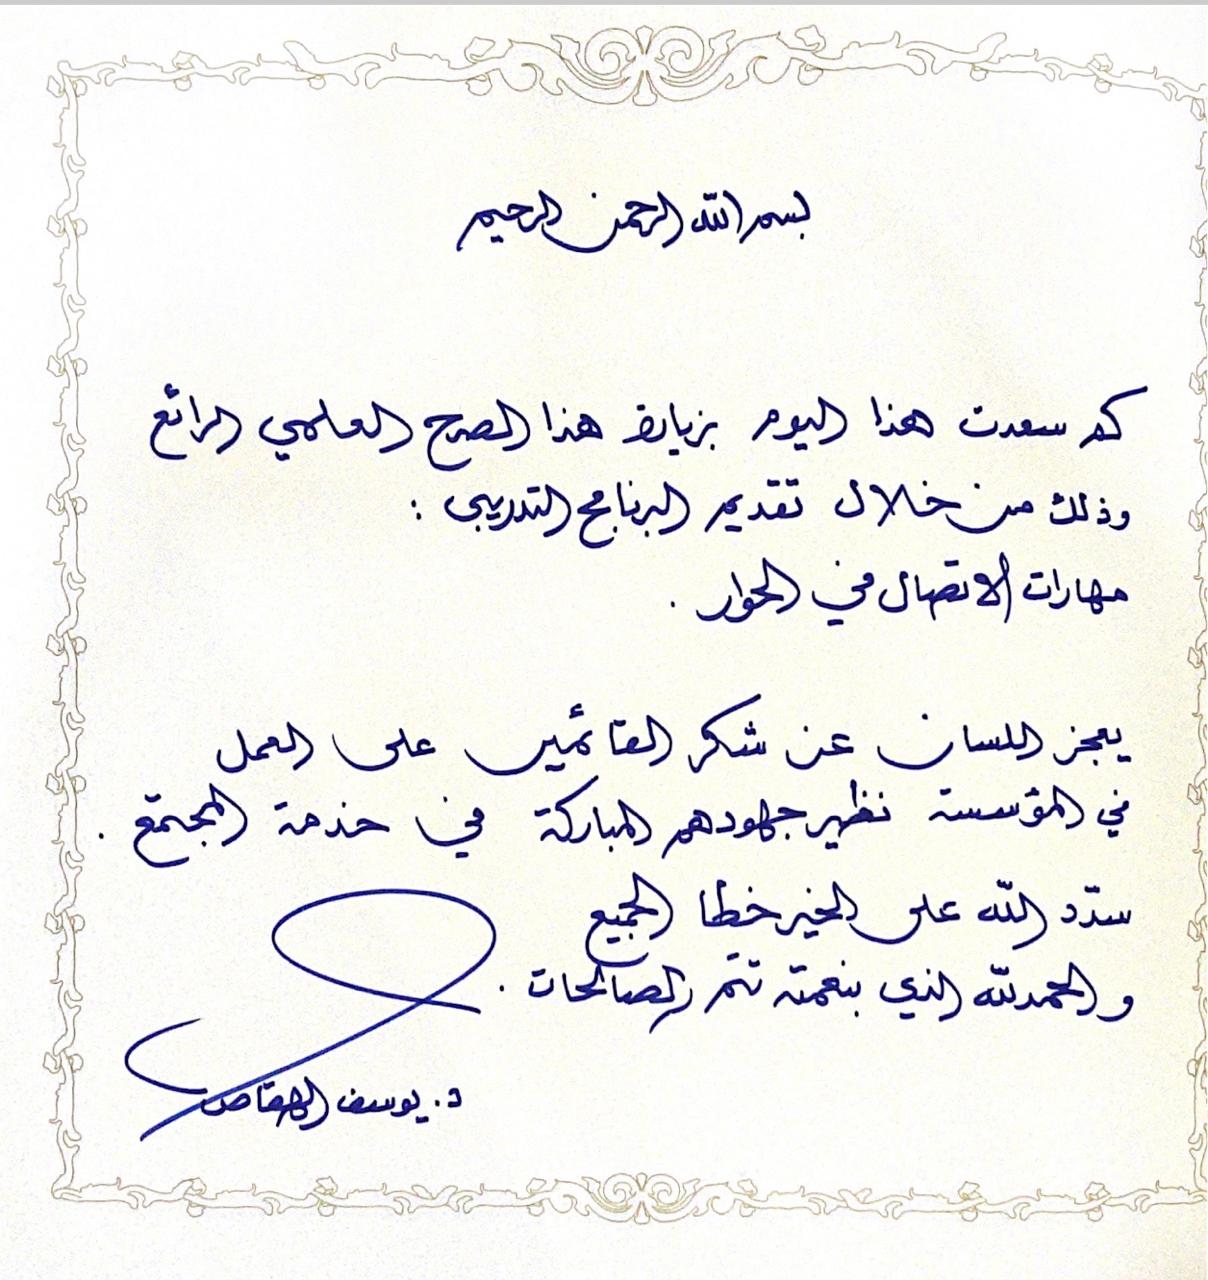 بسم الله الرحمن الرحيم
كم سعدت هذا اليوم بزيارة هذا الصرح العلمي الرائع
وذلك من خلال تقديم البرنامج التدريبي :
مهارات الاتصال في الحوار .
يعجز اللسان عن شكر القائمين على العمل
في المؤسسة نظير جهودهم المباركة في خدمة المجتمع .
سدّد الله على الخير خطا الجميع
و الحمد لله الذي بنعمته تتم الصالحات .
د. يوسف